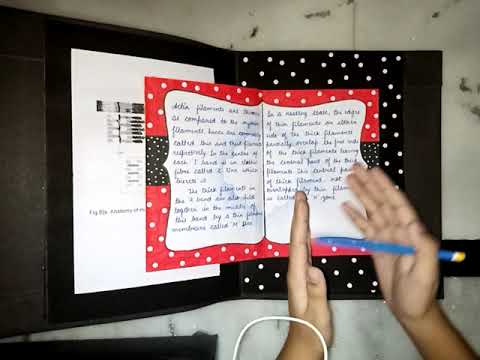 Actin filaments are thinner
as compared to the myosin
filaments, hence are commonly
called thin and thick filaments
respectively. In the centre of
each 'I' band is an elastic
fibre called 'Z' line which
bisects it.
The thick filaments in
the 'A' band are also held
together in the middle of
this band by a thin fibrous
membrane called 'M' line.
In a resting state, the edges
of thin filaments on either
side of the thick filaments
partially overlap the free ends
of the thick filaments leaving
the central part of the thick
filaments. This central part
of thick filament, not
overlapped by thin filaments
is called 'H' zone.
Fig 02a. Anatomy of m